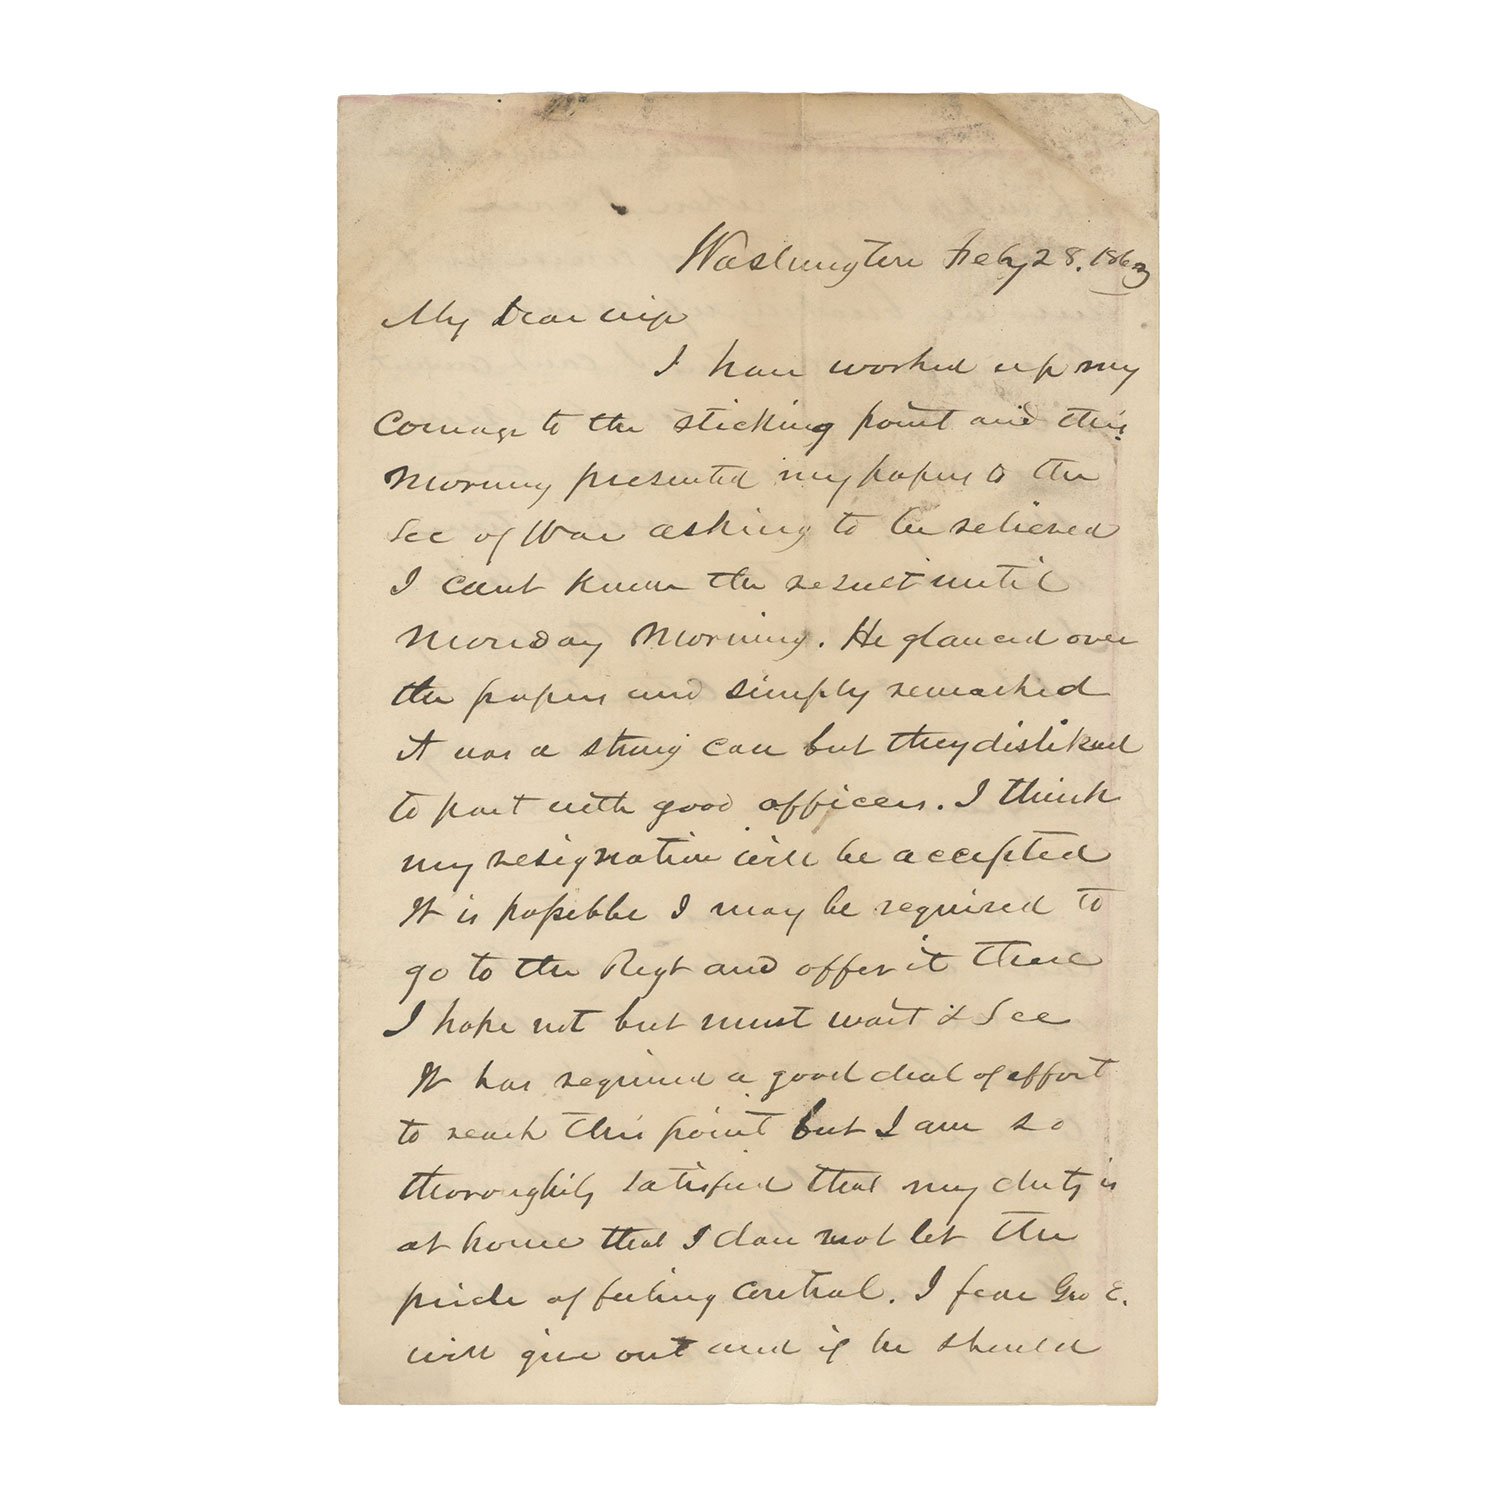 Washington Feby 28. 1863
My Dear wife
I have worked up my
Courage to the sticking point and this
Morning presented my papers to the
Sec of War asking to be relieved
I cant know the result until
Monday Morning. He glanced over
the papers and simply remarked
it was a strong case but they disliked
to part with good officers. I think
my resignation will be accepted
It is possible I may be required to
go to the Regt and offer it there
I hope not but must wait & See
It has required a good deal of effort
to reach this point but I am so
thoroughly satisfied that my duty is
at home that I dare not let the
pride of feeling control. I fear Geo E.
will give out and if he should